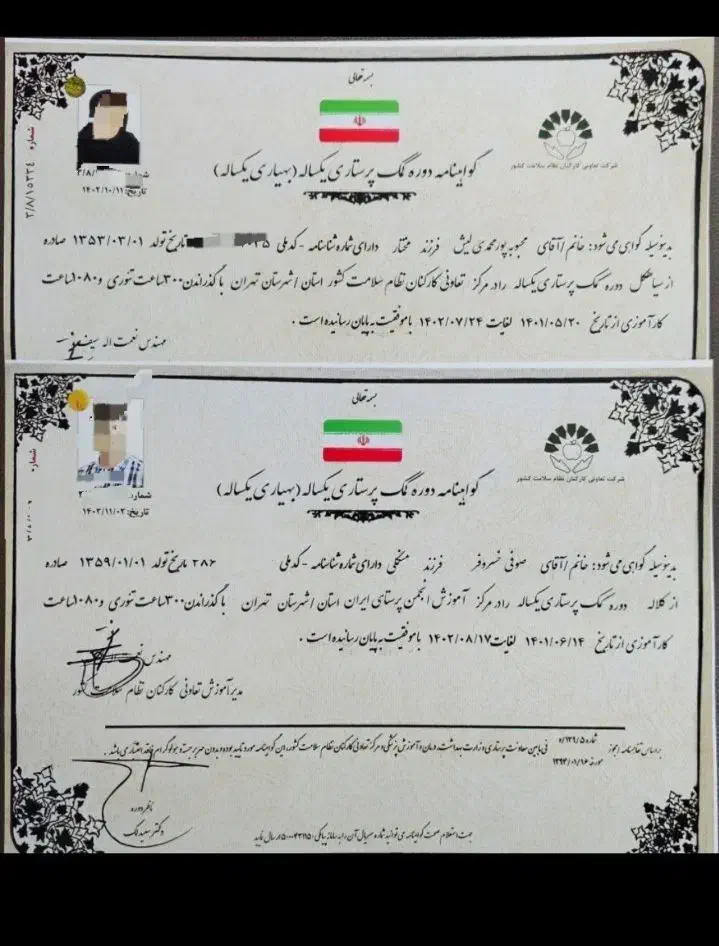 بسمه تعالی
شرکت تعاونی کارکنان نظام سلامت کشور
گواهینامه دوره کمک پرستاری یکساله (بهیاری یکساله)
شماره ۳/۸/۱۵۳۳۴
۳/۸/
تاریخ: ۱۴۰۲/۱۰/۱۱
بدینوسیله گواهی می شود: خانم/آقای محبوبه پورمحمدی لیش فرزند مختار دارای شماره شناسنامه - کدملی تاریخ تولد ۱۳۵۳/۰۳/۰۱ صادره
از سیاهکل دوره کمک پرستاری یکساله را در مرکز تعاونی کارکنان نظام سلامت کشور استان/شهرستان تهران با گذراندن ۳۰۰ ساعت تئوری و ۱۰۸۰ ساعت
کارآموزی از تاریخ ۱۴۰۱/۰۵/۲۰ لغایت ۱۴۰۲/۰۷/۲۴ با موفقیت به پایان رسانیده است.
مهندس نعمت اله
بسمه تعالی
شرکت تعاونی کارکنان نظام سلامت کشور
گواهینامه دوره کمک پرستاری یکساله (بهیاری یکساله)
شماره
شماره:
تاریخ: ۱۴۰۲/۱۱/۰۲
بدینوسیله گواهی می شود: خانم/آقای صوفی خسروفر فرزند منگلی دارای شماره شناسنامه - کدملی ۲۸۶ تاریخ تولد ۱۳۵۹/۰۱/۰۱ صادره
از کلاله دوره کمک پرستاری یکساله را در مرکز آموزش انجمن پرستاری ایران استان/شهرستان تهران با گذراندن ۳۰۰ ساعت تئوری و ۱۰۸۰ ساعت
کارآموزی از تاریخ ۱۴۰۱/۰۶/۱۴ لغایت ۱۴۰۲/۰۸/۱۷ با موفقیت به پایان رسانیده است.
مهندس
مدیر آموزش تعاونی کارکنان نظام سلامت کشور
براساس تفاهمنامه / مجوز شماره ۱۳۹/۵/د مورخه ۱۳۹۳/۰۱/۱۶ فی مابین معاونت پرستاری وزارت بهداشت، درمان و آموزش پزشکی و مرکز تعاونی کارکنان نظام سلامت کشور، این گواهینامه مورد تایید بوده و بدون مهر برجسته و هولوگرام فاقد اعتبار می باشد.
ناظر دوره
دکتر
جهت استعلام صحت گواهینامه می توانید شماره سریال آن را به سامانه پیامکی ارسال نمایید